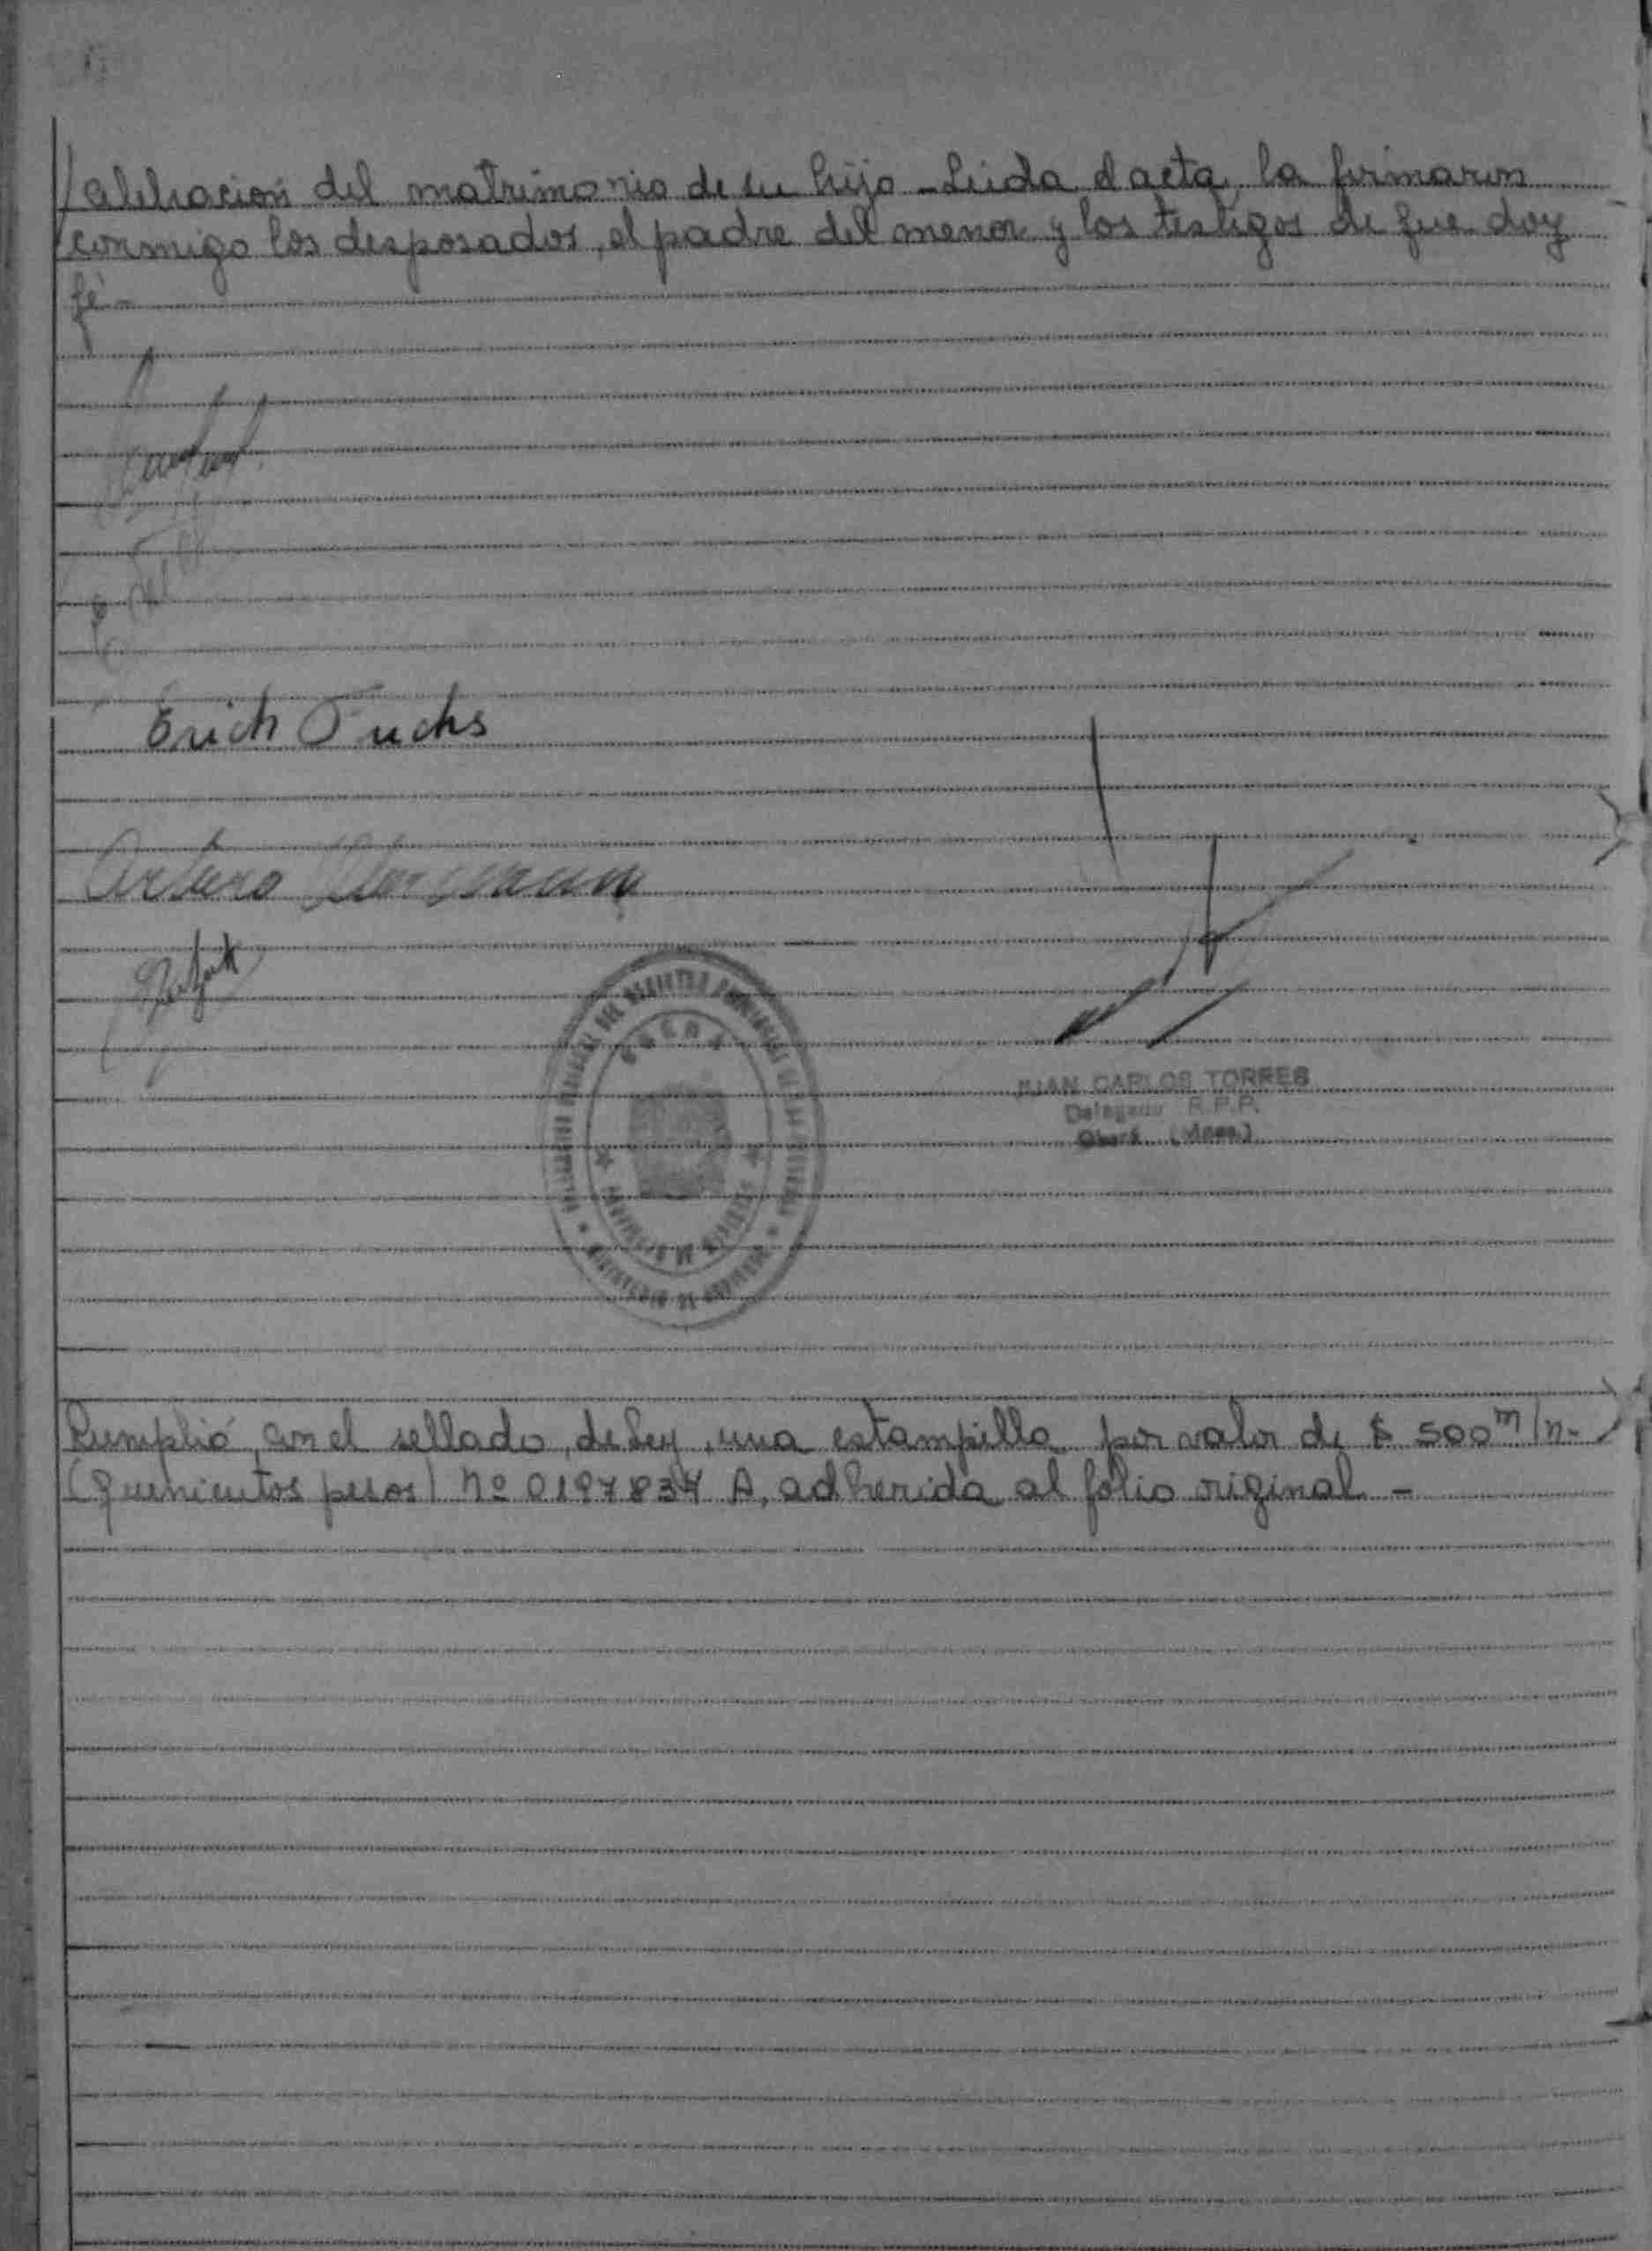 /celebracion del matrimonio de su hijo - Leida el acta, la firmaron
conmigo los desposados, el padre del menor y los testigos de que doy
fé -
Erich Fuchs
Arturo
JUAN CARLOS TORRES
Delegado R.P.P.
Oberá (Mnes.)
OBERA
Cumplió con el sellado, de Ley, una estampilla por valor de $ 500 m/n.-
(Quinientos pesos) Nº 0197834 A, adherida al folio original -